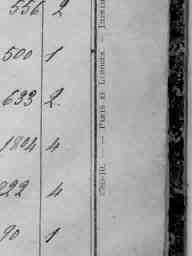 556 2
500 1
633 2
1804 4
222 4
90 1
1780-10. — PARIS ET LIMOGES. —